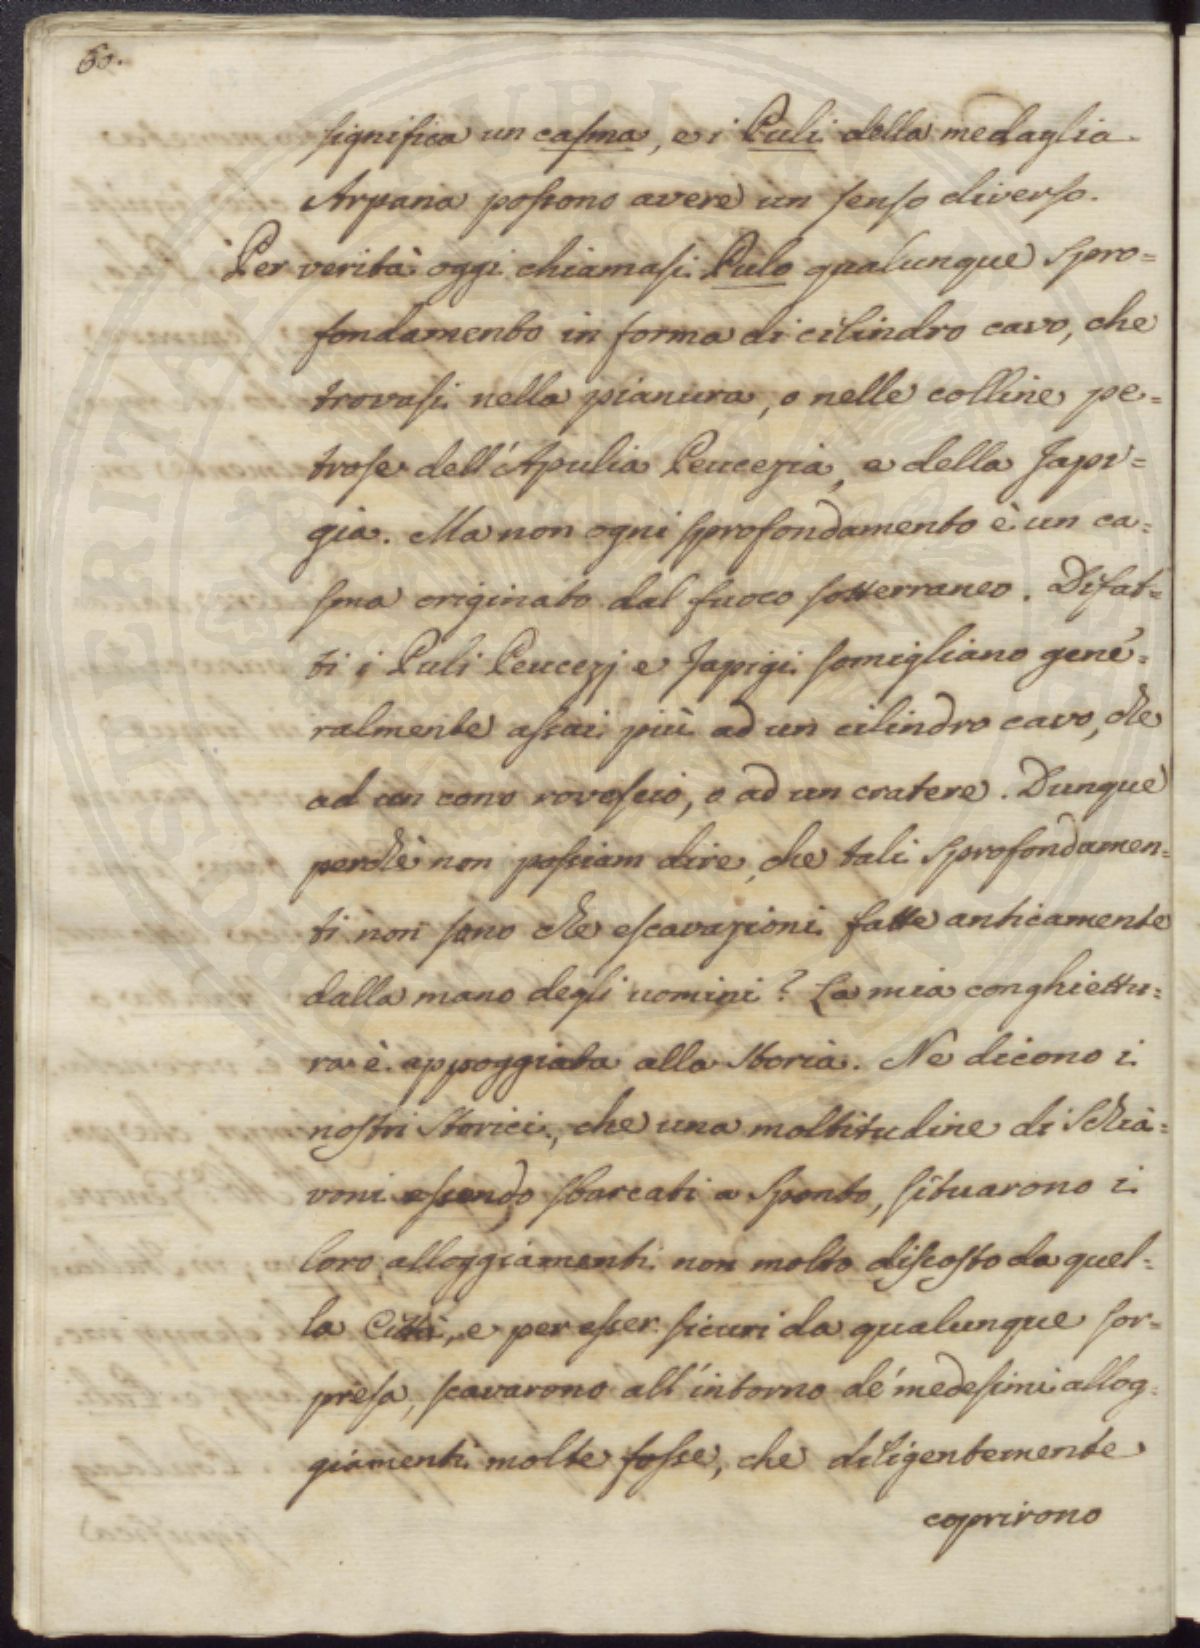 60.
significa un casma, e i Puli della medaglia
Arpana possono avere un senso diverso.
Per verità oggi chiamasi Pulo qualunque spro=
fondamento in forma di cilindro cavo, che
trovasi nella pianura, o nelle colline pe=
trose dell'Apulia Peucezia, e della Japi=
gia. Ma non ogni sprofondamento è un ca=
sma originato dal fuoco sotterraneo. Difat=
ti i Puli Peucezj e Japigi somigliano gene=
ralmente assai più ad un cilindro cavo, che
ad un cono rovescio, o ad un cratere. Dunque
perchè non possiam dire, che tali sprofondamen=
ti non sono che escavazioni fatte anticamente
dalla mano degli uomini? La mia conghiettu=
ra è appoggiata alla storia. Ne dicono i
nostri storici, che una moltitudine di Schia=
voni essendo sbarcati a Siponto, situarono i
loro alloggiamenti non molto discosto da quel=
la Città, e per esser sicuri da qualunque sor=
presa, scavarono all'intorno de' medesimi allog=
giamenti molte fosse, che diligentemente
coprirono